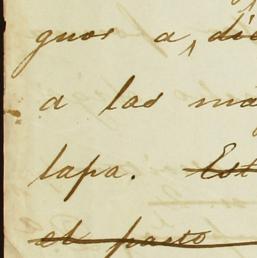 guos a, die
a las ma
lapa. Est
el pacto